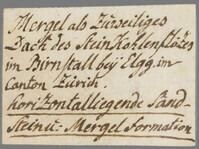 Mergel als Zirseitiges
Dach des Steinkohlenflözes
im Birnstall beÿ Elgg im
Canton Zürich.
horizontalliegende Sand-
Stein u: Mergel formation